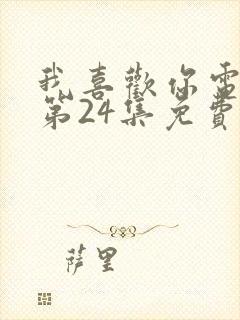 我喜歡你電
第24集免費
薩里